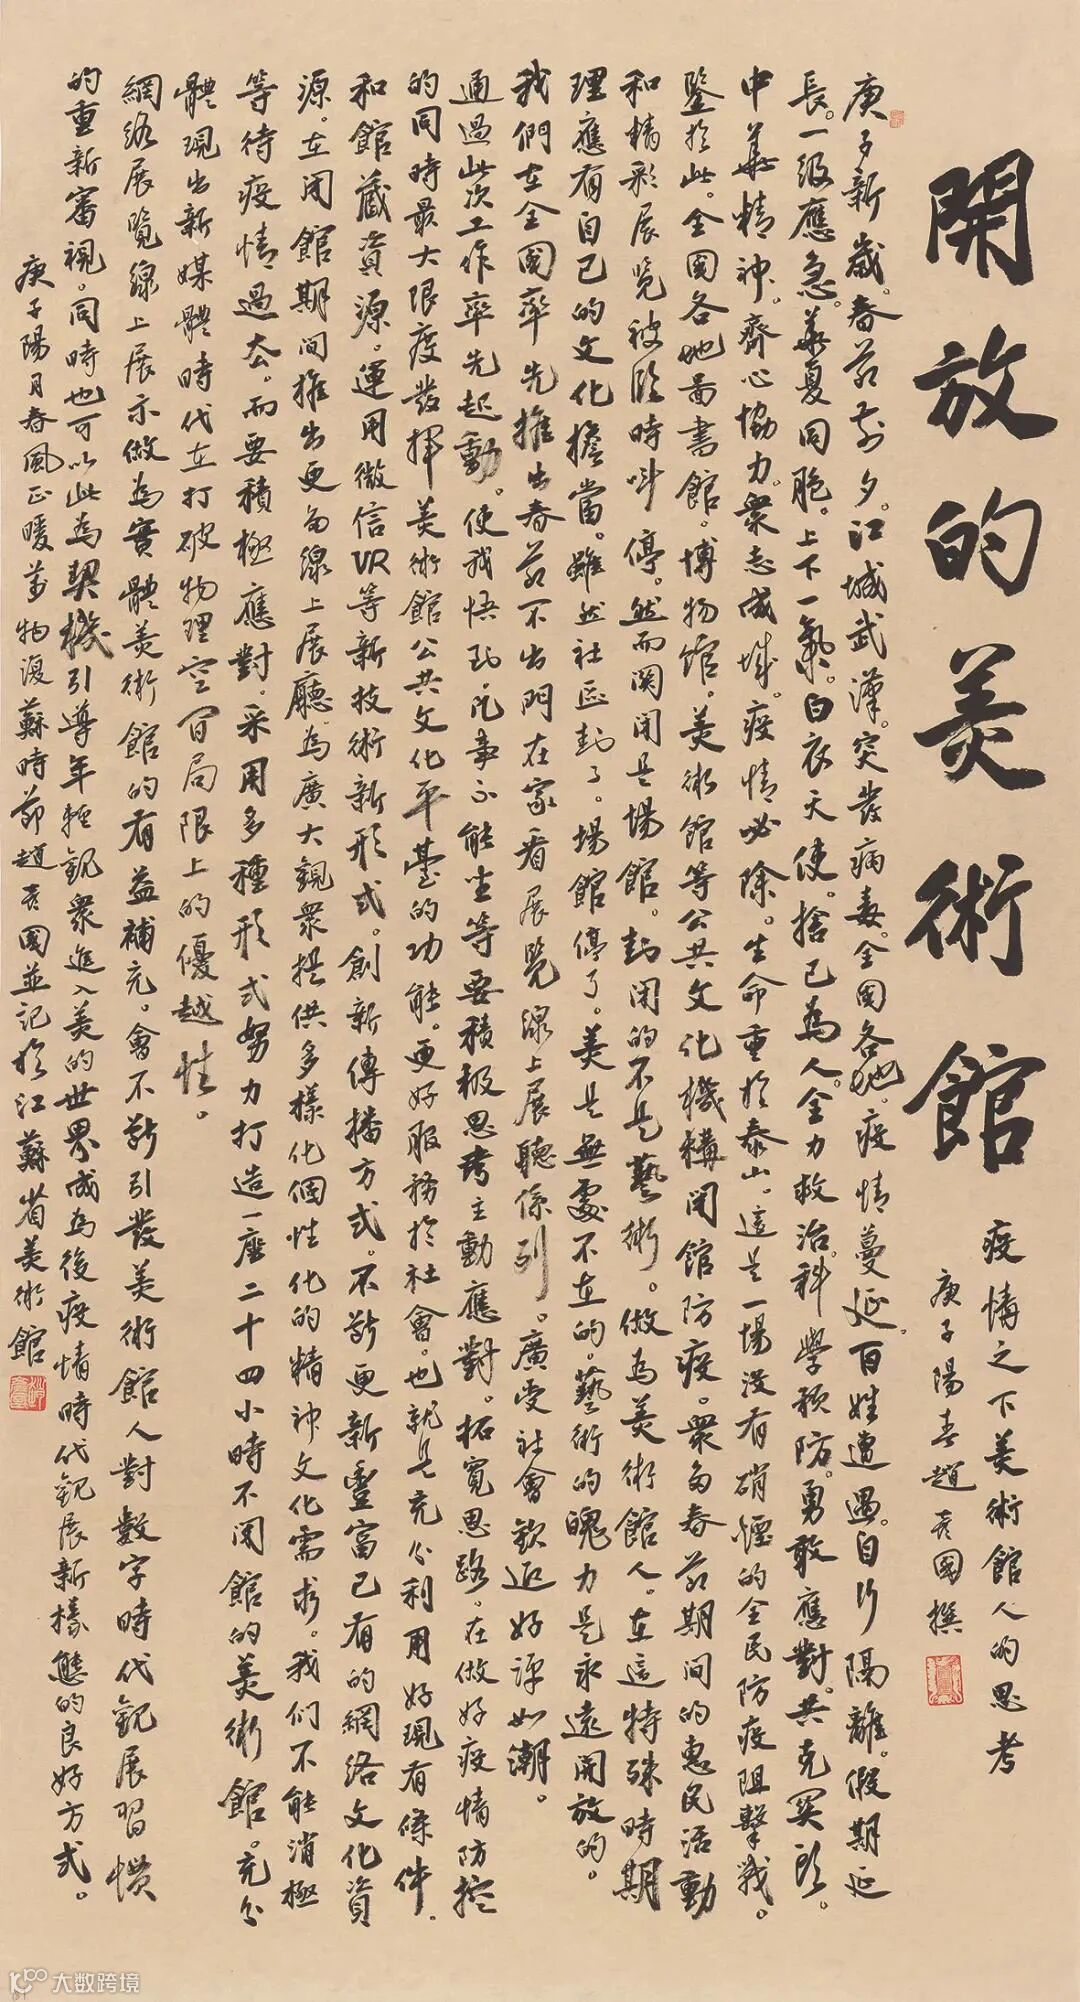 開放的美術館
疫情之下美術館人的思考
庚子陽春趙彥國撰
庚子新歲。春節前夕。江城武漢。突發病毒。全國各地。疫情蔓延。百姓遭遇。自行隔離。假期延
長。一級應急。華夏同胞。上下一氣。白衣天使。捨己為人。全力救治。科學預防。勇敢應對。共克
中華精神。齊心協力。衆志成城。疫情必除。生命重於泰山。這是一場沒有硝煙的全民防疫阻擊戰。
鑒於此。全國各地圖書館。博物館。美術館等公共文化機構閉館防疫。衆多春節期間的惠民活動
和精彩展覽被臨時叫停。然而関閉是場館。封閉的不是藝術。做為美術館人。在這特殊時期
理應有自己的文化擔當。雖然社區封了。場館停了。美是無處不在的。藝術的魄力是永遠開放的。
我們在全國率先推出春節不出門在家看展覽線上展聽係列。廣受社會歡迎好評如潮。
通過此次工作率先起動。使我悟到。凡事不能坐等要積极思考主動應對。拓寬思路。在做好疫情防控
的同時最大限度發揮美術館公共文化平臺的功能。更好服務於社會。也就是充分利用好現有條件
和館藏資源。運用微信VR等新技術新形式。創新傳播方式。不斷更新豐富已有的網絡文化資
源。在閉館期间推出更多線上展廳。為廣大觀衆提供多樣化個性化的精神文化需求。我们不能消極
等待疫情過去。而要積極應對。采用多種形式努力打造一座二十四小時不閉館的美術館。充分
體現出新媒體時代在打破物理空间局限上的優越性。
網絡展覽線上展示做為實體美術館的有益補充。會不斷引發美術館人對數字時代觀展習慣
的重新審視。同時也可以此為契機引導年輕觀衆進入美的世界成為後疫情時代觀展新樣態的良好方式。
庚子陽月春風正暖萬物復蘇時節趙彥國並記於江蘇省美術館
大数跨境